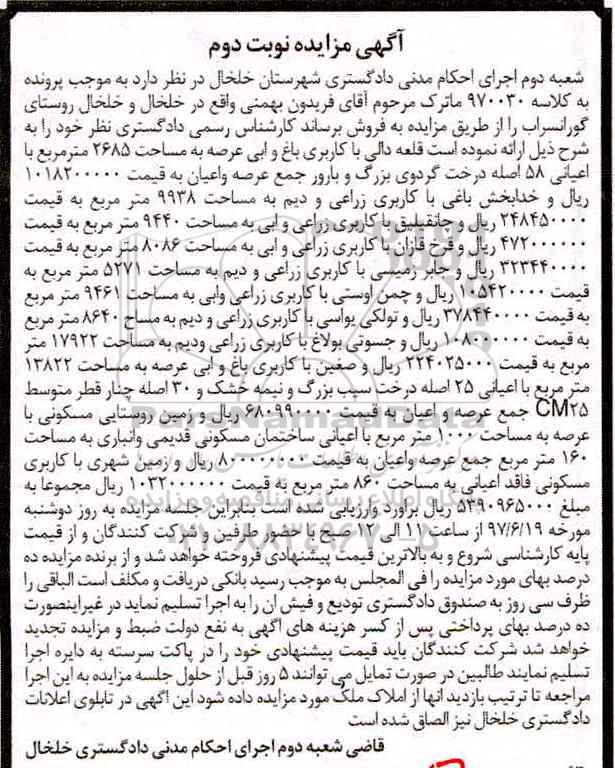 آگهی مزایده نوبت دوم
شعبه دوم اجرای احکام مدنی دادگستری شهرستان خلخال در نظر دارد به موجب پرونده
به کلاسه ۹۷۰۰۳۰ ماترک مرحوم آقای فریدون بهمنی واقع در خلخال و خلخال روستای
گورانسراب را از طریق مزایده به فروش برساند کارشناس رسمی دادگستری نظر خود را به
شرح ذیل ارائه نموده است قلعه دالی با کاربری باغ و ابی عرصه به مساحت ۲۶۸۵ مترمربع با
اعیانی ۵۸ اصله درخت گردوی بزرگ و بارور جمع عرصه واعیان به قیمت ۱۰۱۸۲۰۰۰۰۰
ریال و خدابخش باغی با کاربری زراعی و دیم به مساحت ۹۹۳۸ متر مربع به قیمت
۲۴۸۴۵۰۰۰۰ ریال و جانقیلیق با کاربری زراعی و ابی به مساحت ۹۴۴۰ متر مربع به قیمت
۴۷۲۰۰۰۰۰۰ ریال و فرخ قازان با کاربری زراعی و ابی به مساحت ۸۰۸۶ متر مربع به قیمت
۳۲۳۴۴۰۰۰۰ ریال و جابر زمیسی با کاربری زراعی و دیم به مساحت ۵۲۷۱ متر مربع به
قیمت ۱۰۵۴۲۰۰۰۰ ریال و چمن اوستی با کاربری زراعی وابی به مساحت ۹۴۶۱ متر مربع
به قیمت ۳۷۸۴۴۰۰۰۰ ریال و تولکی یواسی با کاربری زراعی و دیم به مساح ۸۶۴۰ متر مربع
به قیمت ۱۰۸۰۰۰۰۰۰ ریال و جسوتی بولاغ با کاربری زراعی ودیم به مساحت ۱۷۹۲۲ متر
مربع به قیمت ۲۲۴۰۲۵۰۰۰ ریال و صغین با کاربری باغ و ابی عرصه به مساحت ۱۳۸۲۲
متر مربع با اعیانی ۲۵ اصله درخت سیب بزرگ و نیمه خشک و ۳۰ اصله چنار قطر متوسط
CM۲۵ جمع عرصه و اعیان به قیمت ۶۸۰۹۹۰۰۰۰ ریال و زمین روستایی مسکونی با
عرصه به مساحت ۱۰۰۰ متر مربع با اعیانی ساختمان مسکونی قدیمی وانباری به مساحت
۱۶۰ متر مربع جمع عرصه واعیان به قیمت ۸۰۰۰۰۰۰۰۰ ریال و زمین شهری با کاربری
مسکونی فاقد اعیانی به مساحت ۸۶۰ متر مربع به قیمت ۱۰۳۲۰۰۰۰۰۰ ریال مجموعا به
مبلغ ۵۳۹۰۹۶۵۰۰۰ ریال براورد وارزیابی شده است بنابراین جلسه مزایده به روز دوشنبه
مورخه ۹۷/۶/۱۹ از ساعت ۱۱ الی ۱۲ صبح با حضور طرفین و شرکت کنندگان و از قیمت
پایه کارشناسی شروع و به بالاترین قیمت پیشنهادی فروخته خواهد شد و از برنده مزایده ده
درصد بهای مورد مزایده را فی المجلس به موجب رسید بانکی دریافت و مکلف است الباقی را
ظرف سی روز به صندوق دادگستری تودیع و فیش ان را به اجرا تسلیم نماید در غیراینصورت
ده درصد بهای پرداختی پس از کسر هزینه های اگهی به نفع دولت ضبط و مزایده تجدید
خواهد شد شرکت کنندگان باید قیمت پیشنهادی خود را در پاکت سرسته به دایره اجرا
تسلیم نمایند طالبین در صورت تمایل می توانند ۵ روز قبل از حلول جلسه مزایده به این اجرا
مراجعه تا ترتیب بازدید انها از املاک ملک مورد مزایده داده شود این اگهی در تابلوی اعلانات
دادگستری خلخال نیز الصاق شده است
قاضی شعبه دوم اجرای احکام مدنی دادگستری خلخال